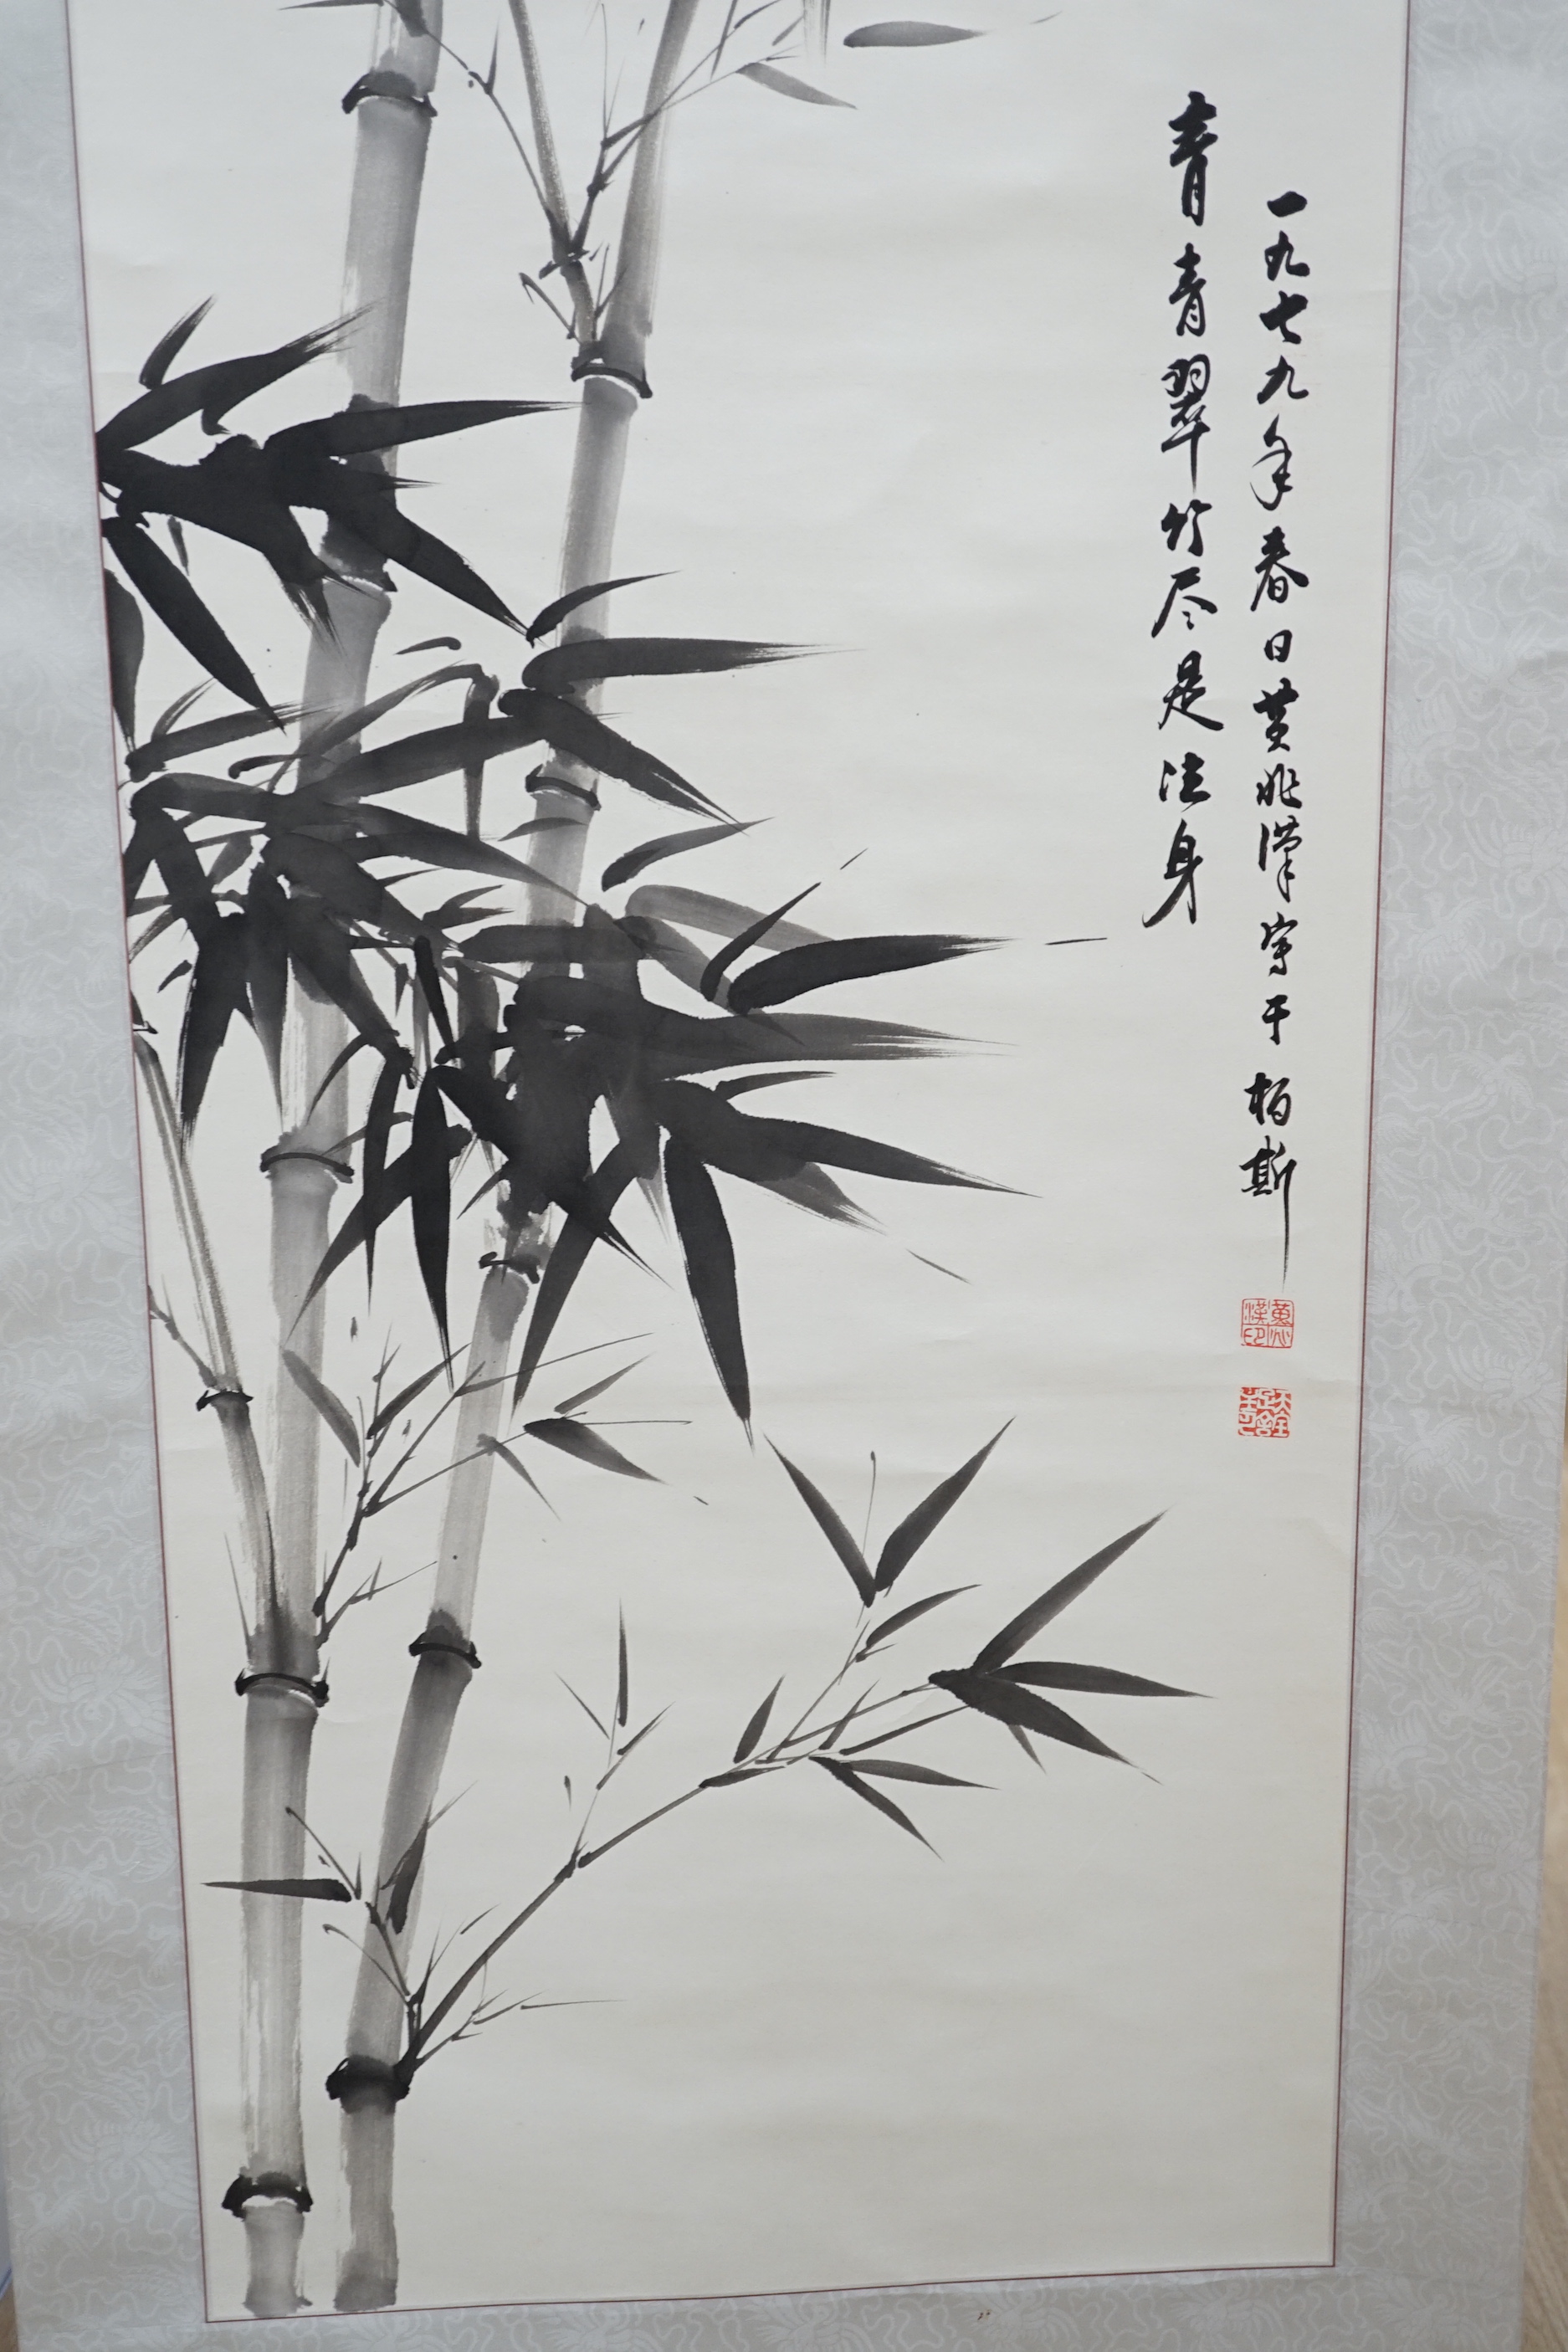 青青翠竹尽是法身
一九七九年春日黄兆漢写于柏斯
黃兆漢印